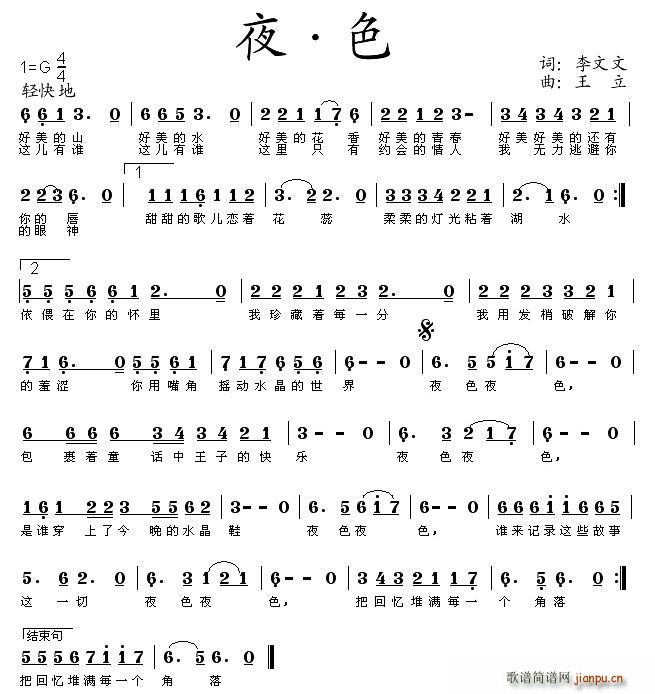 夜·色
1=G 4/4
词：李文文
轻快地
曲：王 立
6 6 1 3. 0 | 6 6 5 3. 0 | 2 2 1 1 7 6 | 2 2 1 2 3- | 3 4 3 4 3 2 1 |
好美的山 好美的水 好美的花 香 好美的青春 好美好美的还有
这儿有谁 这儿有谁 这里 只 有 约会的情人 我 无力逃避你
1
2 2 3 6. 0 | 1 1 1 6 1 1 1 2 | 3. 2 2. 0 | 3 3 3 3 2 1 1 2 | 2. 1 6. 0 :||
你的 唇 甜甜的歌儿恋着 花 蕊 柔柔的灯光粘着 湖 水
的眼 神
2
5 5 5 6 6 1 2. 0 | 2 2 2 1 2 3 2. 0 | 2 2 2 3 3 2 1 |
依偎在你的怀里 我珍藏着每一分 我用发梢破解你
7 1 6. 0 5 5 6 1 | 7 1 7 6 5 6 5 | 6- - 0 | 6. 5 5 i 7 | 6- - 0 |
的羞涩 你用嘴角 摇动水晶的世 界 夜色夜 色，
6 6 6 6 3 4 3 4 2 1 | 3- - 0 | 6. 3 2 1 7 | 6- - 0 |
包 裹着童 话中王子的快 乐 夜色夜 色，
1 6 1 2 2 3 5 5 6 2 | 3- - 0 | 6. 5 6 i 7 | 6- - 0 | 6 6 6 i i 6 6 5 |
是谁穿 上了今 晚的水晶 鞋 夜色夜 色， 谁来记录这些故事
5. 6 2. 0 | 6. 3 1 2 1 | 3- - 0 | 3 4 3 2 2 1 1 7 | 6. 5 6. 0 :||
这 一切 夜色夜 色， 把回忆堆满每一 个 角落
结束句
5 5 5 6 7 1 1 7 | 6. 5 6. 0 ||
把回忆堆满每一个 角 落
歌谱简谱网
jianpu.cn